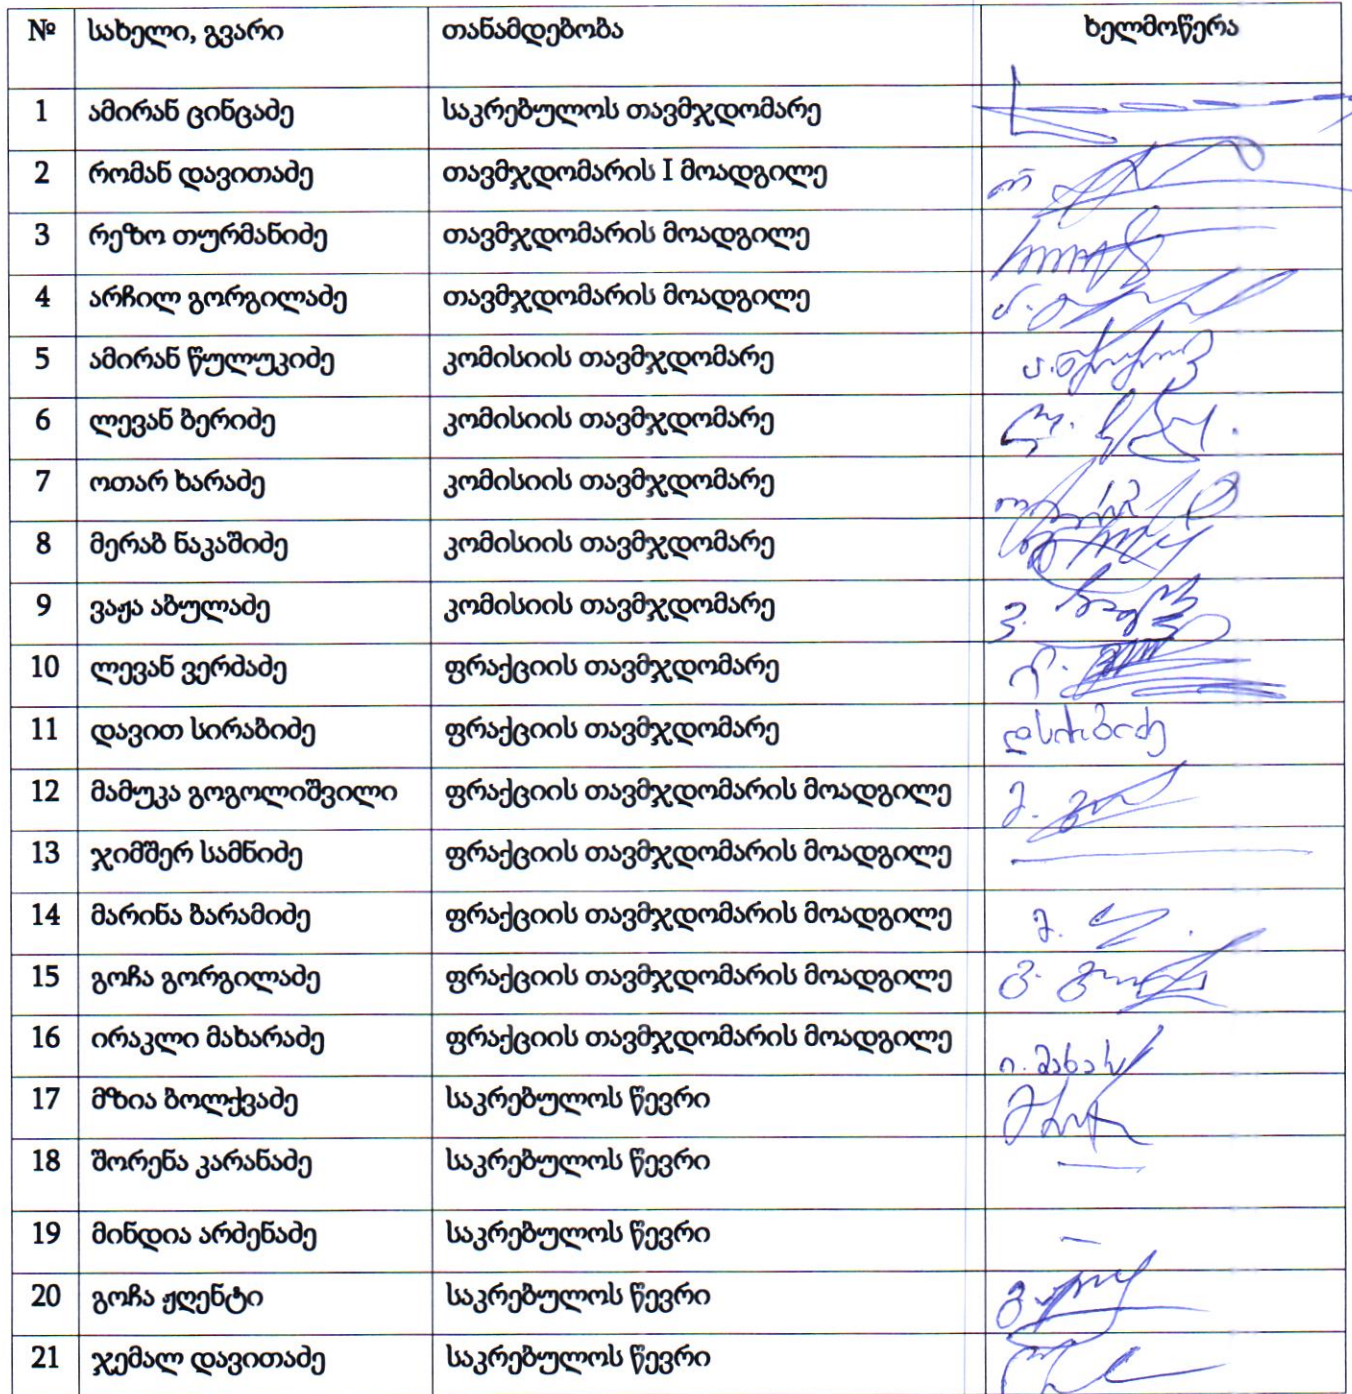 № სახელი, გვარი თანამდებობა ხელმოწერა
1 ამირან ცინცაძე საკრებულოს თავმჯდომარე
2 რომან დავითაძე თავმჯდომარის I მოადგილე
3 რეზო თურმანიძე თავმჯდომარის მოადგილე
4 არჩილ გორგილაძე თავმჯდომარის მოადგილე
5 ამირან წულუკიძე კომისიის თავმჯდომარე
6 ლევან ბერიძე კომისიის თავმჯდომარე
7 ოთარ ხარაძე კომისიის თავმჯდომარე
8 მერაბ ნაკაშიძე კომისიის თავმჯდომარე
9 ვაჟა აბულაძე კომისიის თავმჯდომარე
10 ლევან ვერძაძე ფრაქციის თავმჯდომარე
11 დავით სირაბიძე ფრაქციის თავმჯდომარე დსირაბიძე
12 მამუკა გოგოლიშვილი ფრაქციის თავმჯდომარის მოადგილე
13 ჯიმშერ სამნიძე ფრაქციის თავმჯდომარის მოადგილე
14 მარინა ბარამიძე ფრაქციის თავმჯდომარის მოადგილე
15 გოჩა გორგილაძე ფრაქციის თავმჯდომარის მოადგილე
16 ირაკლი მახარაძე ფრაქციის თავმჯდომარის მოადგილე
17 მზია ბოლქვაძე საკრებულოს წევრი
18 შორენა კარანაძე საკრებულოს წევრი
19 მინდია არძენაძე საკრებულოს წევრი
20 გოჩა ჟღენტი საკრებულოს წევრი
21 ჯემალ დავითაძე საკრებულოს წევრი